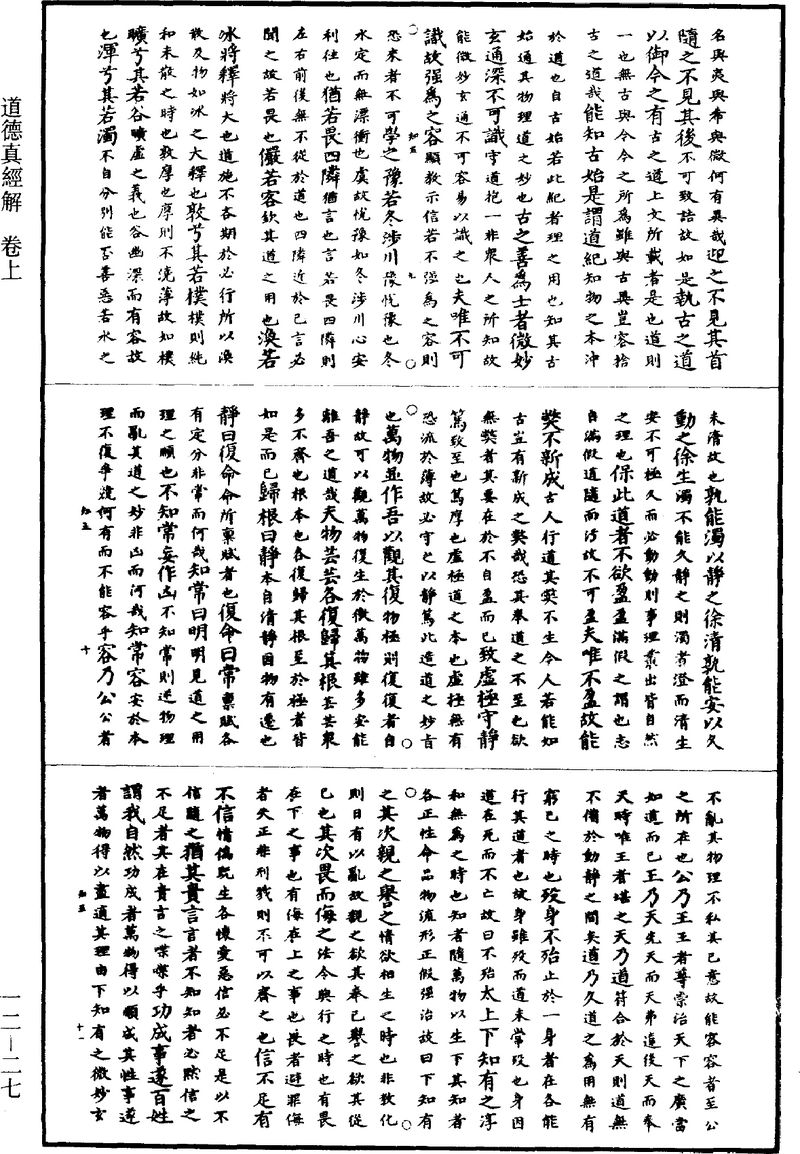 道德真經解 卷上
一二—二七
名與夷與希與微何有異哉迎之不見其首
隨之不見其後不可致詰故如是執古之道
以御今之有古之道上文所載者是也道則
一也無古與今今之所為雖與古異豈容捨
古之道哉能知古始是謂道紀知物之本沖
於道也自古始若此紀者理之用也知其古
始通其物理道之妙也古之善為士者微妙
玄通深不可識守道抱一非衆人之所知故
能微妙玄通不可容易以識之也夫唯不可
識故强為之容顯教示信若不强為之容則
恐來者不可學之豫若冬涉川豫恍豫也冬
水定而無漂衝也虞故恍豫如冬涉川心安
利往也猶若畏四隣猶言也言若畏四隣則
左右前後無不從於道也四隣近於己言必
聞之故若畏也儼若客欽其道之用也渙若
冰將釋將大也道施不吝期於必行所以渙
散及物如冰之大釋也敦兮其若樸樸則純
和未散之時也敦厚也厚則不澆薄故如樸
曠兮其若谷曠虛之義也谷幽深而有容故
也渾兮其若濁不自分別能否善惡若水之
知五
九
未清故也孰能濁以靜之徐清孰能安以久
動之徐生濁不能久靜之則濁者澄而清生
安不可極久而必動動則事理叢出皆自然
之理也保此道者不欲盈盈滿假之謂也志
自滿假道隨而污故不可盈夫唯不盈故能
弊不新成古人行道其弊不生令人若能如
古豈有新成之弊哉恐其奉道之不至也欲
無弊者其要在於不自盈而已致虛極守靜
篤致至也篤厚也虛極道之本也虛極無有
恐流於薄故必守之以靜篤此造道之妙旨
也萬物並作吾以觀其復物極則復復者自
靜故可以觀萬物復生於微萬物雖多安能
離吾之道哉夫物芸芸各復歸其根芸芸衆
多不齊也根本也各復歸其根至於極者皆
如是而已歸根曰靜本自清靜因物有遷也
靜曰復命命所稟賦者也復命曰常稟賦各
有定分非常而何哉知常曰明明見道之用
理之順也不知常妄作凶不知常則逆物理
而亂其道之妙非凶而何哉知常容安於本
理不復爭競何有而不能容乎容乃公公者
知五
十
不亂其物理不私其己意故能容容者至公
之所在也公乃王王者尊崇治天下之廣當
如道而已王乃天先天而天弗違後天而奉
天時唯王者堪之天乃道符合於天則道無
不備於動靜之間矣道乃久道之為用無有
窮已之時也歿身不殆止於一身者在各能
行其道者也故身雖歿而道未常歿也身因
道在死而不亡故曰不殆太上下知有之淳
和無為之時也知者隨萬物以生下其知者
各正性命品物流形正假强治故曰下知有
之其次親之譽之情欲相生之時也非致化
則日有以亂故親之欲其奉己譽之欲其從
己也其次畏而侮之法令興行之時也有畏
在下之事也有侮在上之事也畏者避罪侮
者失正非利我則不可以齊之也信不足有
不信情僞既生各懷愛惡信必不足是以不
信隨之猶其貴言言者不知知者必默信之
不足者其在貴言之喋喋乎功成事遂百姓
謂我自然功成者萬物得以順成其性事遂
者萬物得以盡適其理由下知有之微妙玄
知五
十一